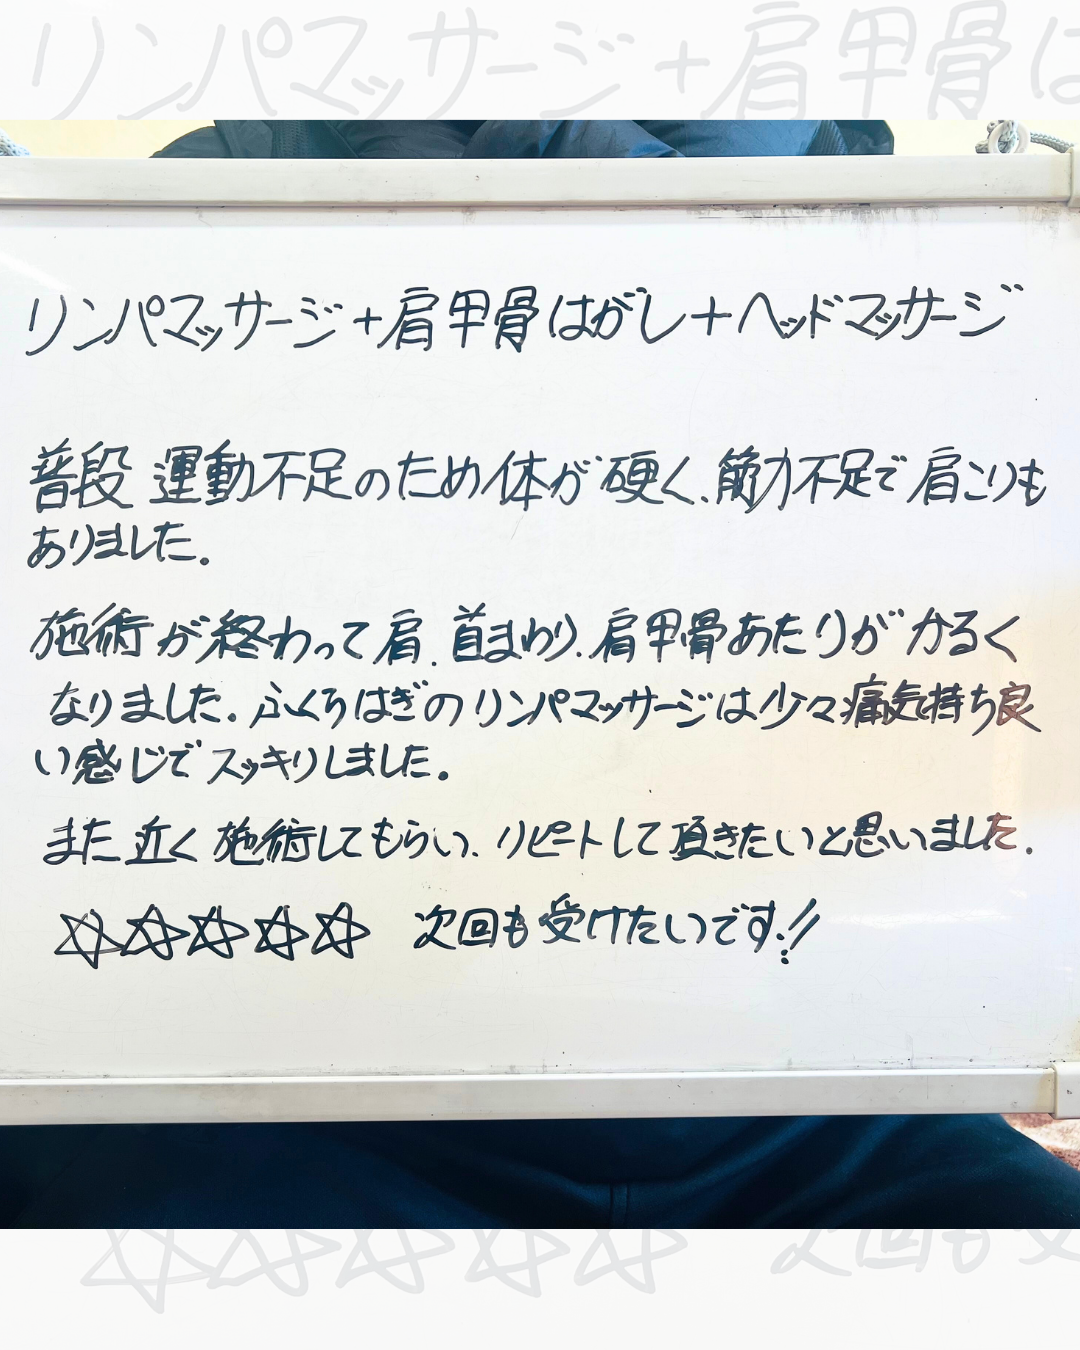 リンパマッサージ+肩甲骨はがし+ヘッドマッサージ
普段 運動不足のため体が硬く、筋力不足で肩こりも
ありました。
施術が終わって肩、首まわり、肩甲骨あたりがかるく
なりました。ふくらはぎのリンパマッサージは少々痛気持ち良
い感じでスッキリしました。
また近く施術してもらい、リピートして頂きたいと思いました。
☆☆☆☆☆ 次回も受けたいです!!